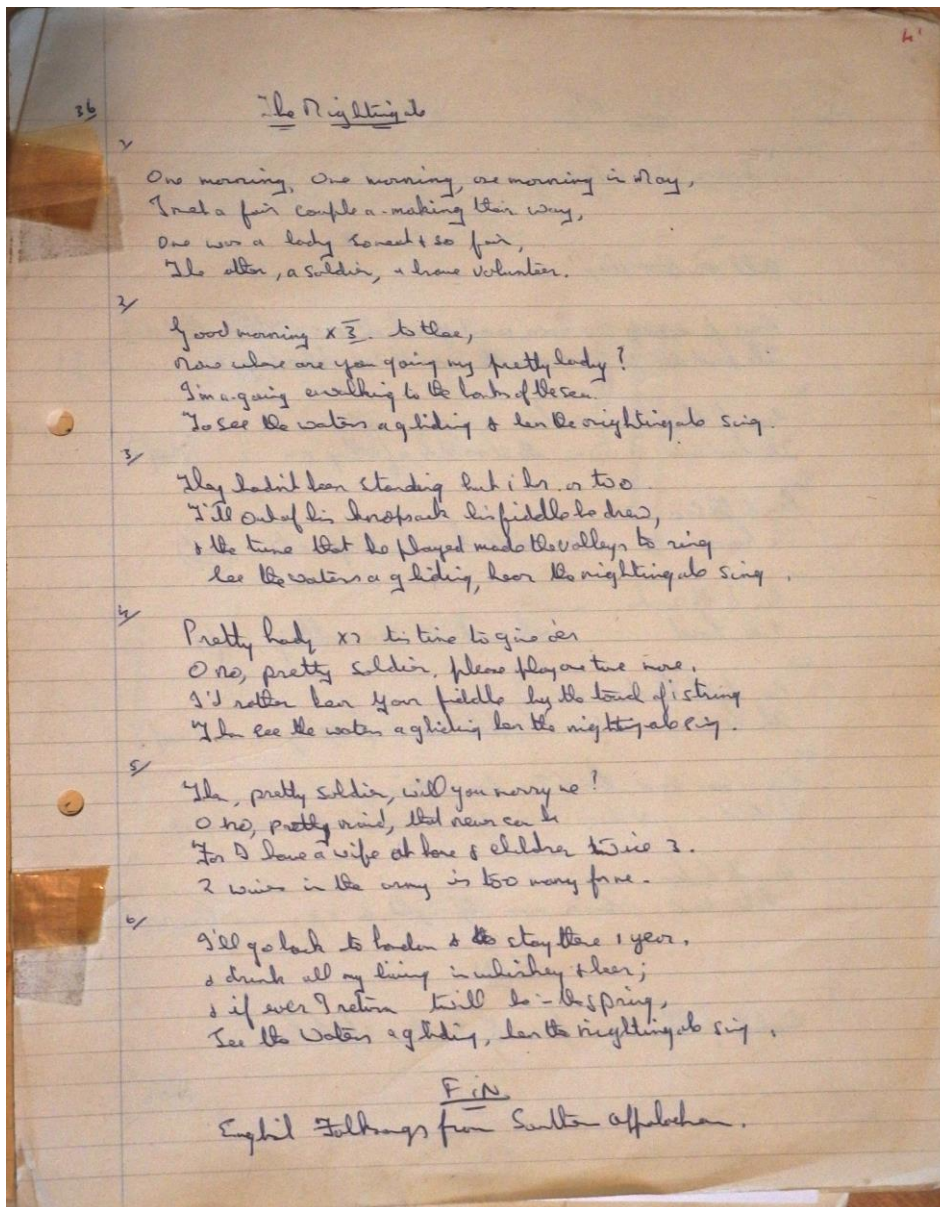 41
36 The Nightingale
1/
One morning, One morning, one morning in May,
I met a fair couple a-making their way,
One was a lady so neat & so fair,
The other, a soldier, a brave volunteer.
2/
Good morning x 3. to thee,
Now where are you going my pretty lady?
I'm a-going awalking to the banks of the sea.
To see the waters a gliding & hear the nightingale sing.
3/
They hadn't been standing but 1 hr. or two
Till out of his knapsack his fiddle he drew,
& the tune that he played made the valleys to ring
See the waters a gliding, hear the nightingale sing.
4/
Pretty lady tis time to give oer
O no, pretty soldier, please play one tune more,
I'd rather hear your fiddle by the touch of 1 string
Than see the waters a gliding hear the nightingale sing.
5/
Then, pretty soldier, will you marry me?
O no, pretty maid, that never can be
For I have a wife at home & children twice 3.
2 wives in the army is too many for me.
6/
I'll go back to London & stay there 1 year,
& drink all my living in whiskey & beer;
& if ever I return twill be in the spring,
See the waters a gliding, hear the nightingale sing.
FiN
English Folksongs from Southern Appalachian.